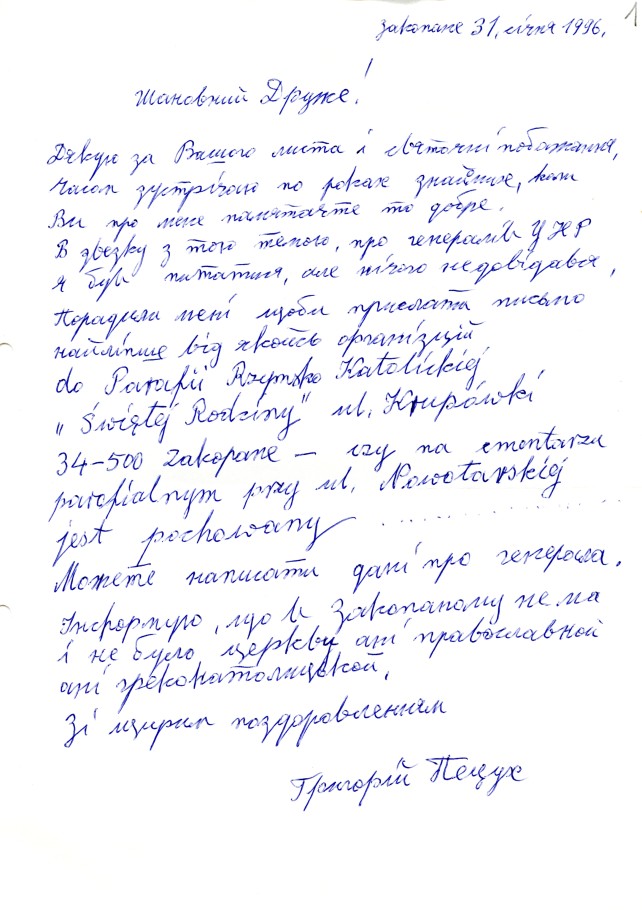 1
Закопане 31, січня 1996.
Шановний Друже!
Дякую за Вашого листа і святочні побажання,
часом зустрічаю по роках знайомих, коли
Ви про мене памятаєте то добре.
В звязку з тою темою, про генералів УНР
я був питатися, але нічого недовідався,
Порадили мені щоби прислати письмо
найліпше від якоїсь організації
do Parafii Rzymsko Katolickiej
"Świętej Rodziny" ul. Krupówki
34-500 Zakopane — czy na cmentarzu
parafialnym przy ul. Nowotarskiej
jest pochowany ..............
Можете написати дані про генерала.
Інформую, що в Закопаному не ма
і не було церкви ані православной
ані грекокатолицької,
Зі щирим поздоровленням
Григорій Пецух